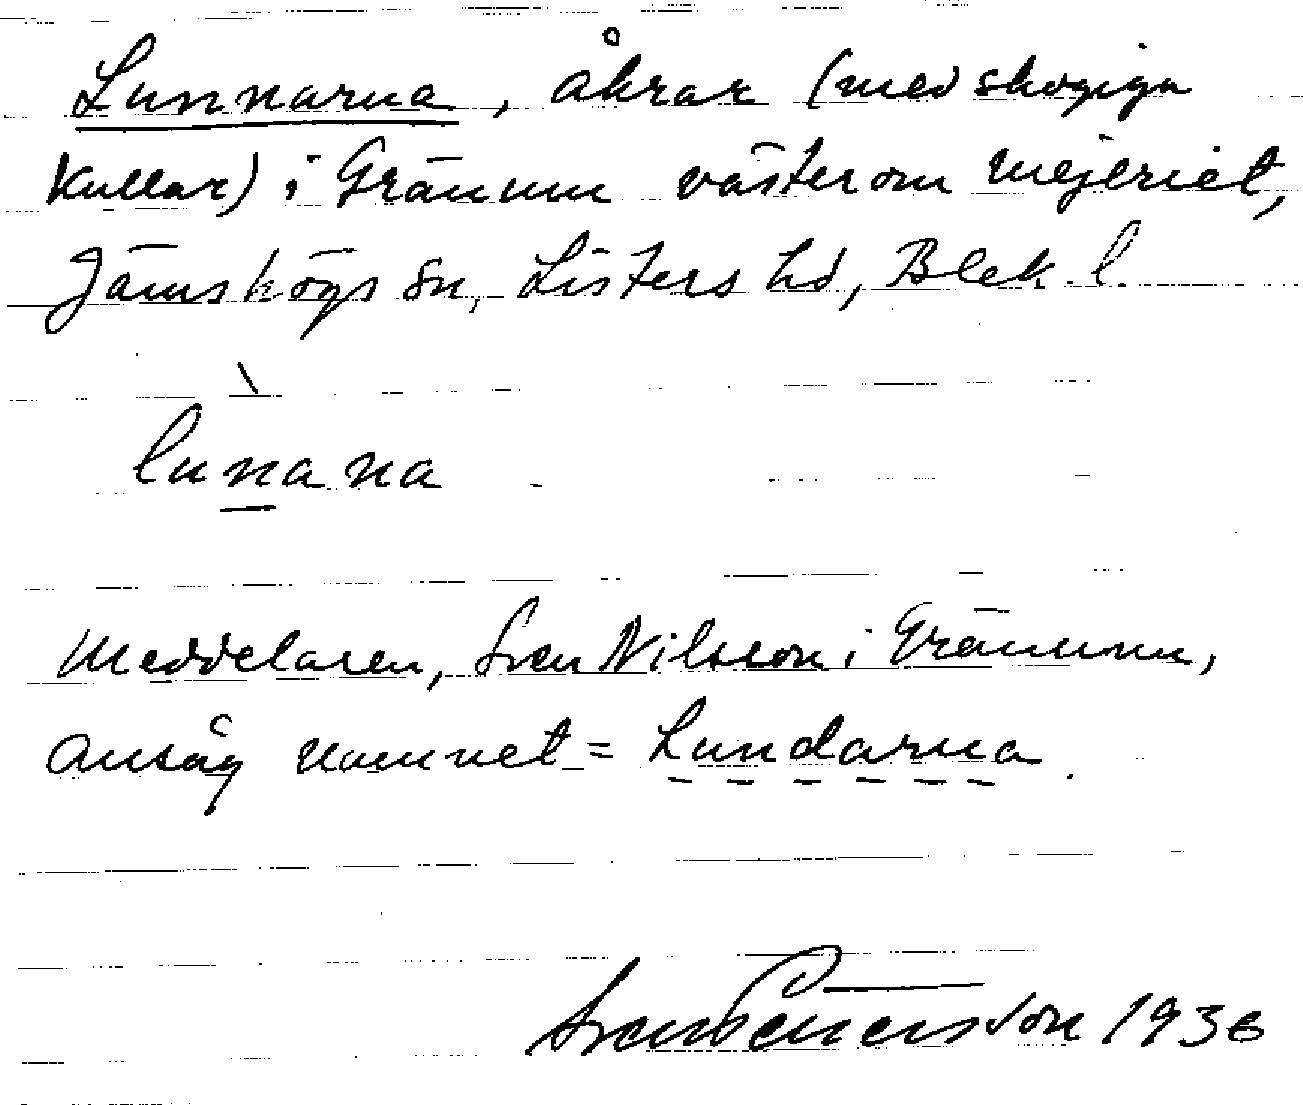 Lunnarna, åkrar (med skogiga
kullar) i Grämum västerom mejeriet,
Jämshögs sn, Listers hd, Blek. l.
lunana
Meddelaren, Sven Nilsson i Grämum,
ansåg namnet = Lundarna.
Sven Benson 1936